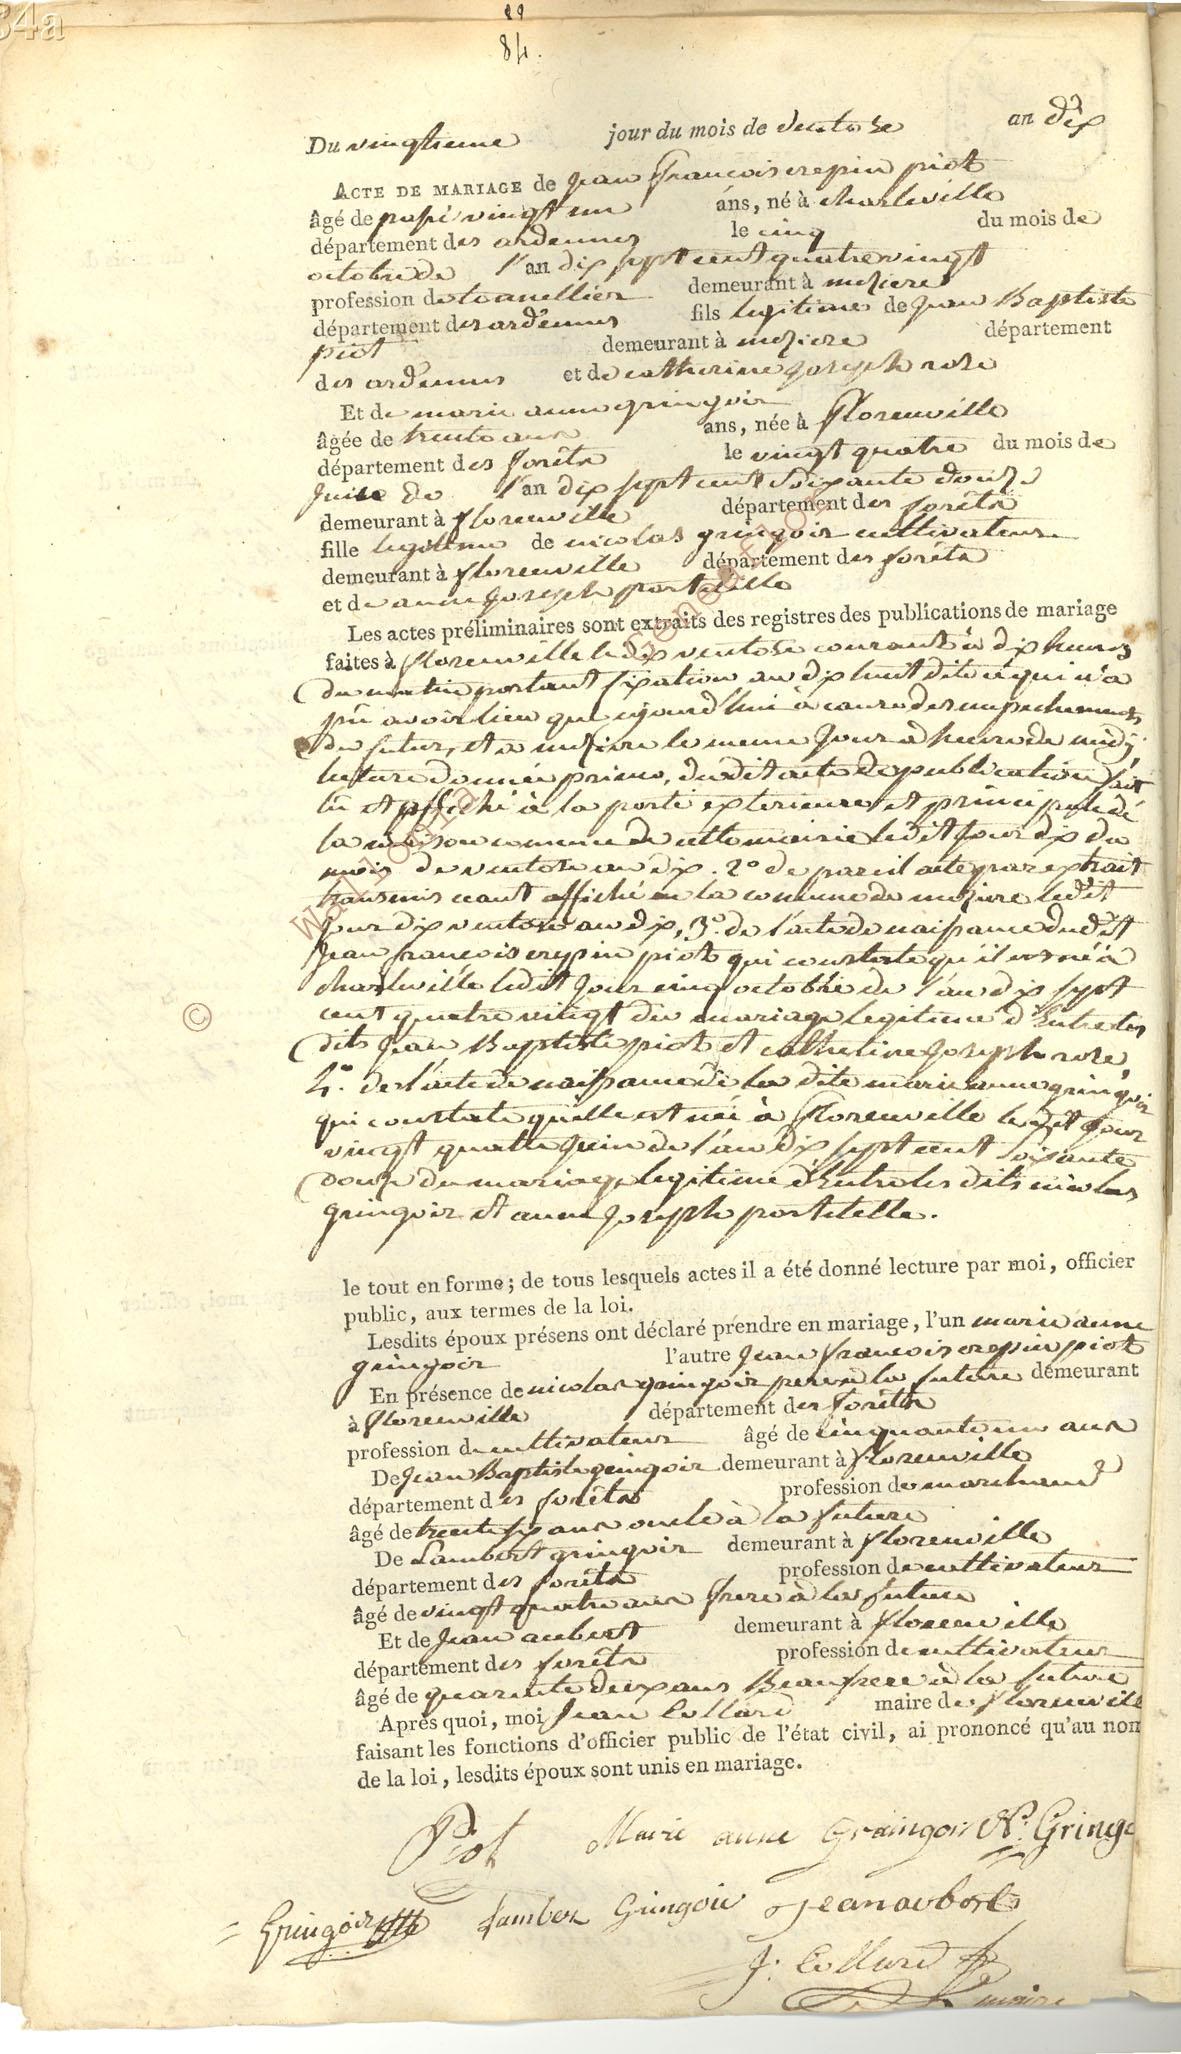 84a
84.
Du vingtieme jour du mois de ventose an dix
ACTE DE MARIAGE de jean françois crepin piot
âgé de passé vingt un ans, né à charleville
département des ardennes le cinq du mois de
octobre de l'an dix sept cent quatre vingt
profession de tonnellier demeurant à meziere
département des ardennes fils legitime de jean Baptiste
piot demeurant à meziere département
des ardennes et de catherine joseph rose
Et de marie anne gringoir
âgée de trente ans ans, née à florenville
département des forêts le vingt quatre du mois de
juin de l'an dix sept cent soixante douze
demeurant à florenville département des forêts
fille legitime de nicolas gringoir cultivateur
demeurant à florenville département des forêts
et de anne joseph portelelle
Les actes préliminaires sont extraits des registres des publications de mariage
faites à florenville le dix ventose courant à dix heures
du matin portant fixation au dix huit dite et qui n'a
pû avoir lieu que aujourd'huis à cause des empechements
du futur, et à meziere le meme jour à heure de midÿ
lecture donnée primo, dudit acte de publication fait
lû et affiché à la porte exterieure et principale de
la maison comune de cette mairie ledit jour dix du
mois de ventose an dix. 2° de pareil acte par extrait
transmis et affiché en la comune de meziere ledit
jour dix ventose an dix, 3°. de l'acte de naissance dudit
jean françois crepin piot qui constate qu'il est né à
charleville ledit jour cinq octobre de l'an dix sept
cent quatre vingt du mariage legitime d'Entre les
dits jean Baptiste piot et catherine joseph rose,
4°. de l'acte de naissance de la dite marie anne gringoir
qui constate quelle est née à florenville ledit jour
vingt quatre juin de l'an dix sept cent soixante
douze du mariage legitime d'Entre les dits nicolas
gringoir et anne joseph portelelle.
le tout en forme; de tous lesquels actes il a été donné lecture par moi, officier
public, aux termes de la loi.
Lesdits époux présens ont déclaré prendre en mariage, l'un marie anne
gringoir l'autre jean françois crepin piot
En présence de nicolas gringoir pere à la future demeurant
à florenville département des forêts
profession de cultivateur âgé de cinquante un ans
De jean Baptiste gringoir demeurant à florenville
département des forêts profession de marchand
âgé de trente six ans oncle à la future
De Lambert gringoir demeurant à florenville
département des forêts profession de cultivateur
âgé de vingt quatre ans frere à la future
Et de jean aubert demeurant à florenville
département des forêts profession de cultivateur
âgé de quarante deux ans Beaufrere à la future
Après quoi, moi Jean Collard maire de florenville
faisant les fonctions d'officier public de l'état civil, ai prononcé qu'au nom
de la loi, lesdits époux sont unis en mariage.
Piot Marie anne Graingoir N. Gringo
Gringoir Lamber Gringoir Jean aubert
J: Collard
maire
©